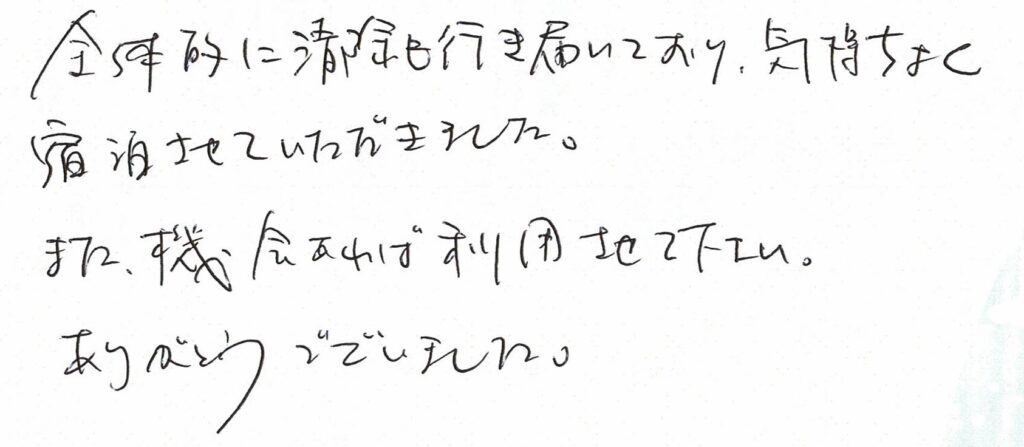 全体的に清除も行き届いており、気持ちよく
宿泊させていただきました。
また、機会あれば利用させて下さい。
ありがとうございました。